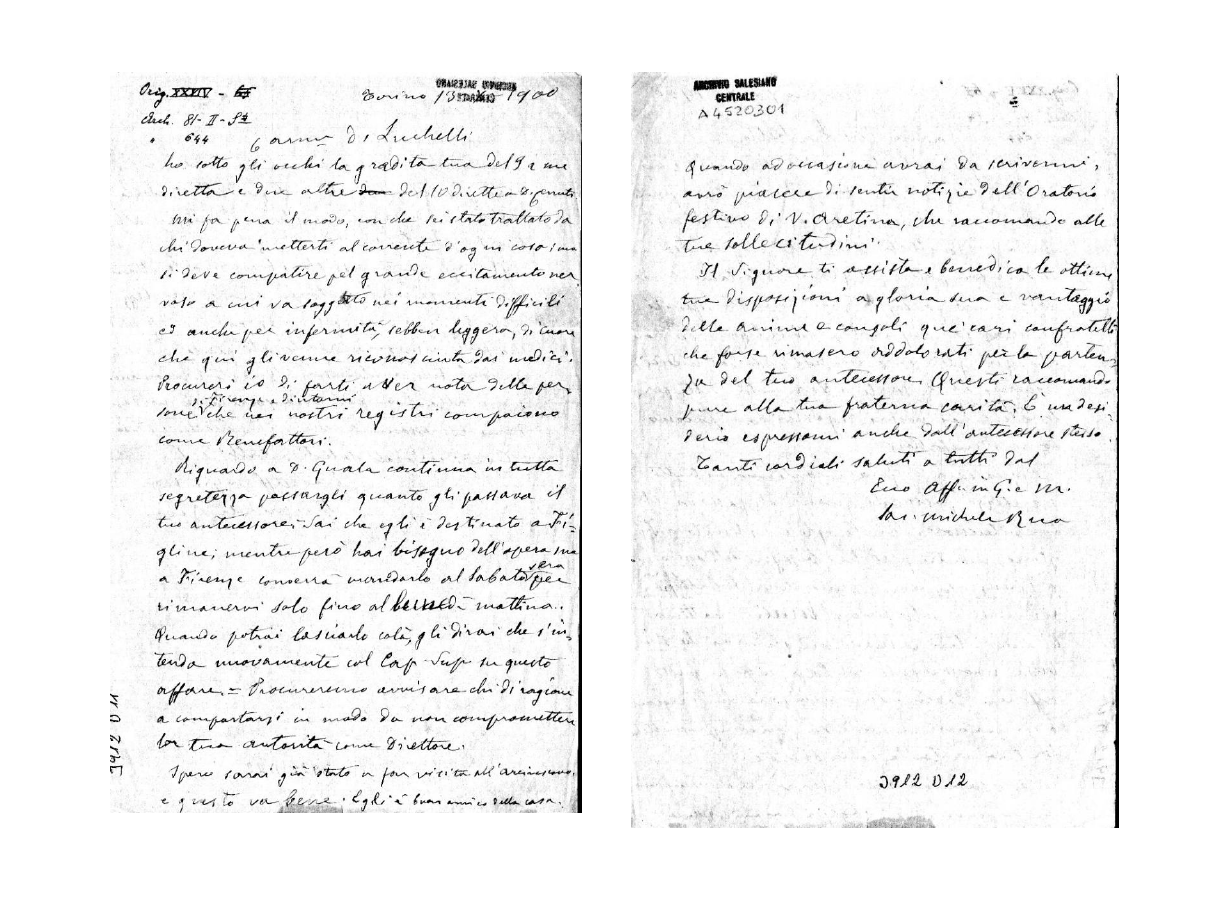 Orig. XXXIV - 65
Arch. 81-II-S4
" 644
ARCHIVIO SALESIANO
CENTRALE
Torino 13 1900
Carmo D. Luchelli
ho sotto gli occhi la gradita tua del 9 a me
diretta e due altre del 10 dirette a D.
Mi fa pena il modo, con che sei stato trattato da
chi doveva metterti al corrente d'ogni cosa; ma
si deve compatire pel grande eccitamento ner
voso a cui va soggetto nei momenti difficili
ed anche per infermità, sebben leggera, di cuore
che qui gli venne riconosciuta dai medici.
Procurerò io di farti aver nota delle per
di Firenze e dintorni
sone che nei nostri registri compaiono
come Benefattori.
Riguardo a D. Guala continua in tutta
segretezza passargli quanto gli passava il
tuo antecessore; Sai che egli è destinato a Fi=
gline; mentre però hai bisogno dell'opera sua
sera
a Firenze converrà mandarlo al Sabato per
rimanervi solo fino al lunedì mattina.
Quando potrai lasciarlo colà, gli dirai che s'in=
tenda nuovamente col Cap. Sup. su questo
affare. = Procureremo avvisare chi di ragione
a comportarsi in modo da non compromettere
la tua autorità come Direttore.
Spero sarai già stato a far visita all'arcivescovo,
e questo va bene. Egli è buon amico della casa.
3912 D 11
ARCHIVIO SALESIANO
CENTRALE
A4520301
Quando ad occasione avrai da scrivermi,
avrò piacere di sentir notizie dell'Oratorio
festivo di V. Aretina, che raccomando alle
tue sollecitudini.
Il Signore ti assista e benedica le ottime
tue disposizioni a gloria sua e vantaggio
delle anime e consoli que' cari confratelli
che forse rimasero addolorati per la parten=
za del tuo antecessore. Questi raccomando
pure alla tua fraterna carità. È un desi
derio espressomi anche dall'antecessore stesso.
Tanti cordiali saluti a tutti dal
Tuo Aff. in G. e M.
Sac. Michele Rua
3912 D 12